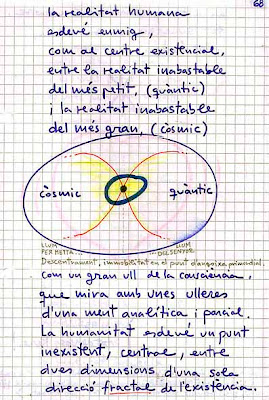 68
la realitat humana
esdevé enmig,
com al centre existencial,
entre la realitat inabastable
del més petit, (quàntic)
i la realitat inabastable
del més gran, (còsmic)
còsmic quàntic
LLUM LLUM
PER META... DEL SENYOR
Descentrament, immobilitat en el punt d'angoixa primordial.
com un gran ull de la consciència,
que mira amb unes ulleres
d'una ment analítica i parcial.
La humanitat esdevé un punt
inexistent, central, entre
dues dimensions d'una sola
direcció fractal de l'existència.